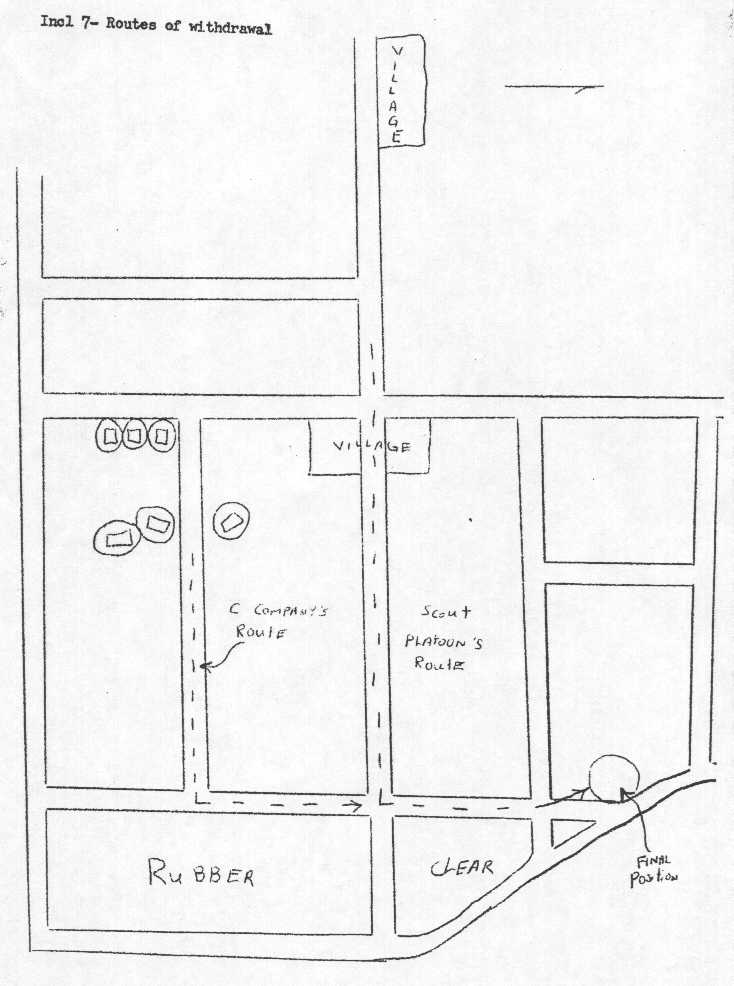 Incl 7- Routes of withdrawal
VILLAGE
VILLAGE
C COMPANY'S
ROUTE
SCOUT
PLATOON'S
ROUTE
RUBBER
CLEAR
FINAL
POSITION